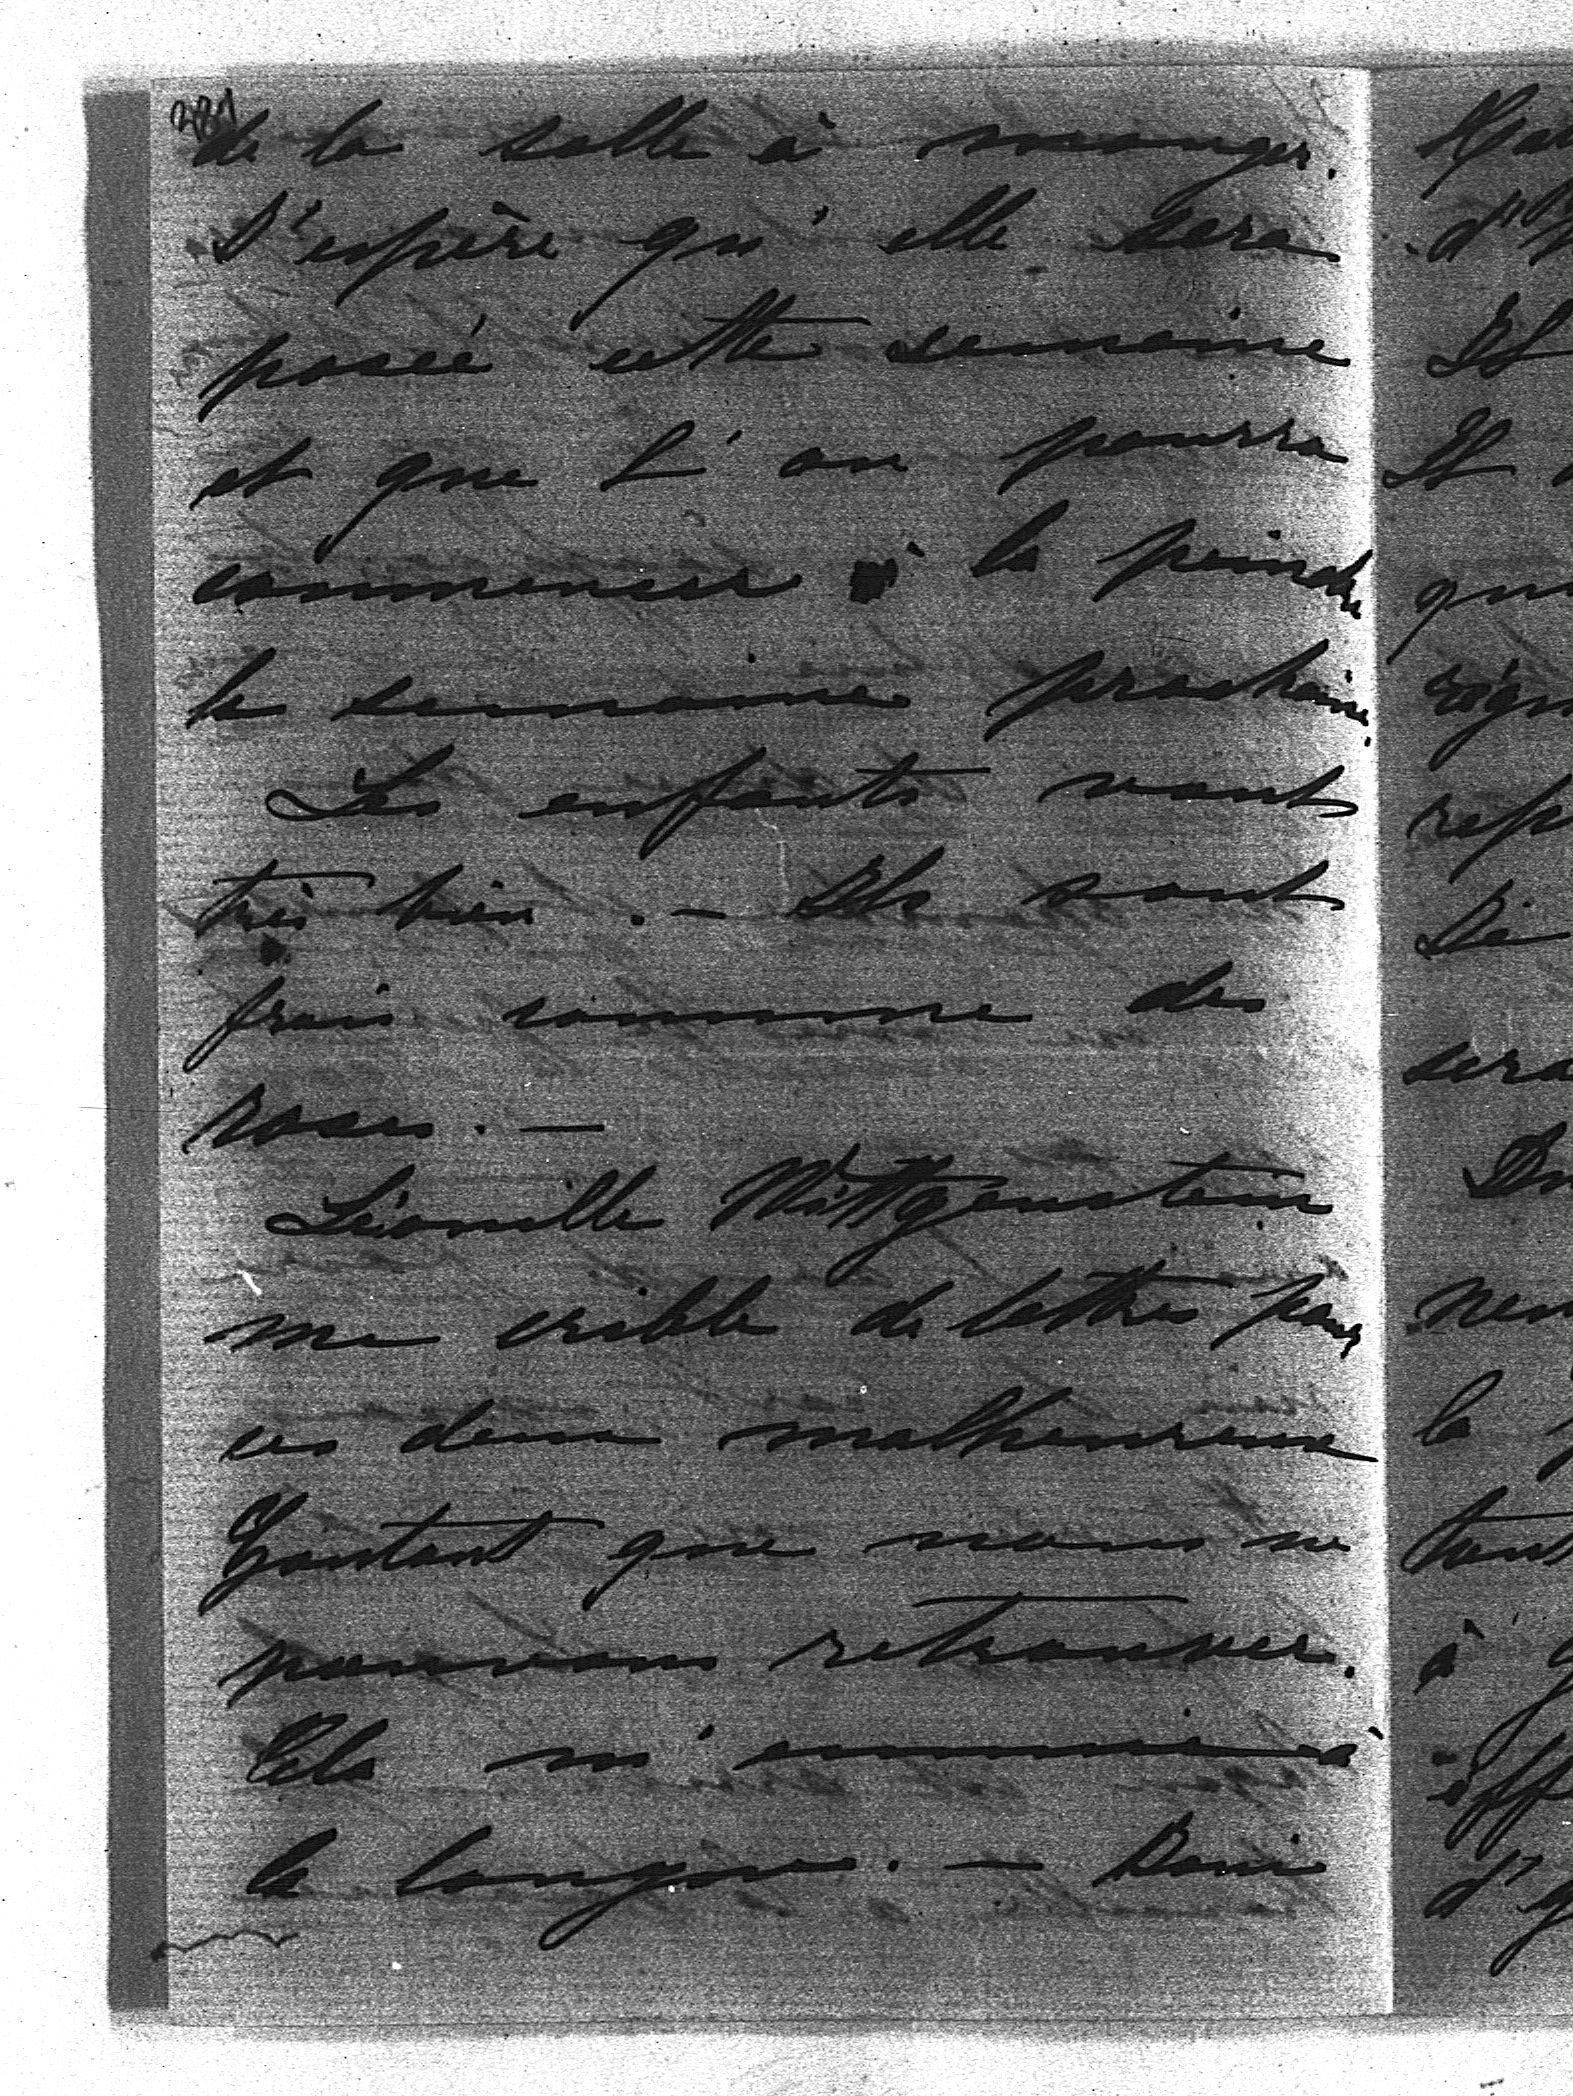 de la salle à manger.
J'espère qu'elle sera
posée cette semaine
et que l'on pourra
commencer à la peindre
la semaine prochaine.
Les enfants vont
très bien. — Ils sont
frais comme des
roses. —
Léonille Wittgenstein
me crible de lettres pour
ces deux malheureux
que nous ne
pouvons retrouver.
Cela m'ennuie à
la longue. —